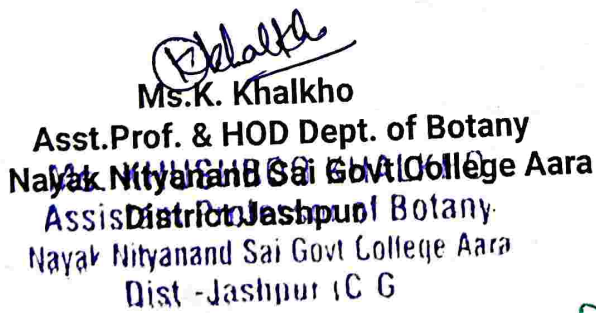 Khalkho
Ms.K. Khalkho
Asst.Prof. & HOD Dept. of Botany
Nayak Nityanand Sai Govt.College Aara
District.Jashpur
Ms. KHUSHBOO KHALKHO
Assistant Professor of Botany
Nayak Nityanand Sai Govt College Aara
Dist -Jashpur (C G